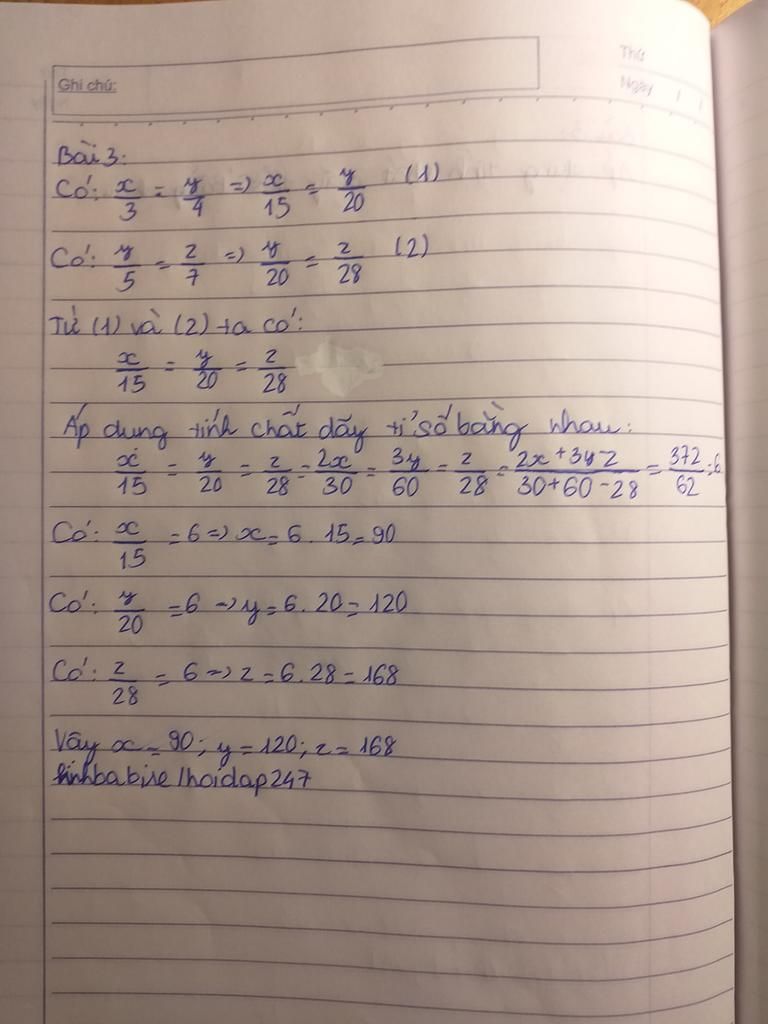 Thứ
Ghi chú:
Ngày / /
Bài 3:
Có: x/3 = y/4 => x/15 = y/20 (1)
Có: y/5 = z/7 => y/20 = z/28 (2)
Từ (1) và (2) ta có:
x/15 = y/20 = z/28
Áp dụng tính chất dãy tỉ số bằng nhau:
x/15 = y/20 = z/28 = 2x/30 = 3y/60 = z/28 = 2x+3y-z/30+60-28 = 372/62 = 6
Có: x/15 = 6 => x = 6.15 = 90
Có: y/20 = 6 => y = 6.20 = 120
Có: z/28 = 6 => z = 6.28 = 168
Vậy x = 90; y = 120; z = 168
/hoidap247